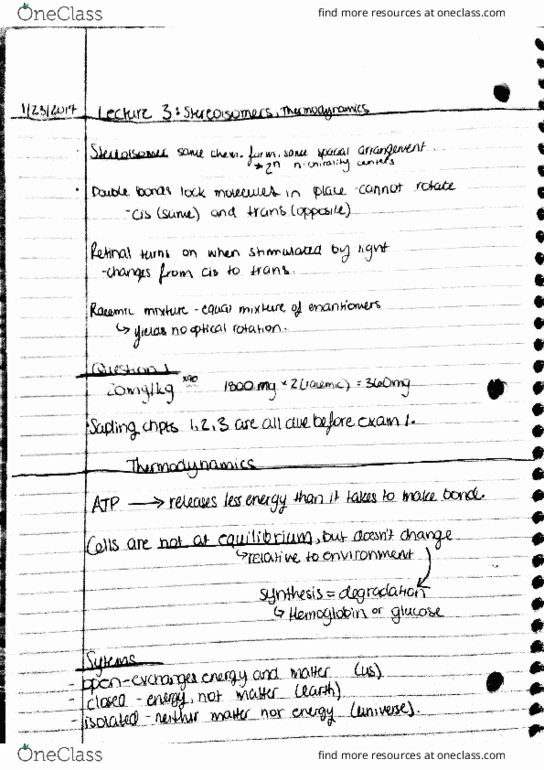 OneClass find more resources at oneclass.com
1/23/2017 Lecture 3: Stereoisomers, Thermodynamics
Stereoisomer same chem. form, same spacial arrangement
* 2ⁿ n = chirality centers
· Double bonds lock molecules in place - cannot rotate
- cis (same) and trans (opposite)
Retinal turns on when stimulated by light
- changes from cis to trans.
Racemic mixture - equal mixture of enantiomers
↳ yields no optical rotation.
Question 1
20mg/kg ×90 1800 mg × 2 (racemic) = 3600mg
Sapling chpts 1, 2, 3 are all due before exam 1.
Thermodynamics
ATP → releases less energy than it takes to make bond.
Cells are not at equilibrium, but doesn't change
↳ relative to environment
synthesis = degradation
↳ Hemoglobin or glucose
Systems
- open - exchanges energy and matter (us)
- closed - energy, not matter (earth)
- isolated - neither matter nor energy (universe).
OneClass find more resources at oneclass.com